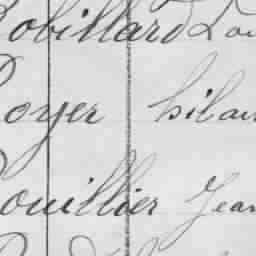 Robillard Lou
Royer hilair
Rouillier Jean